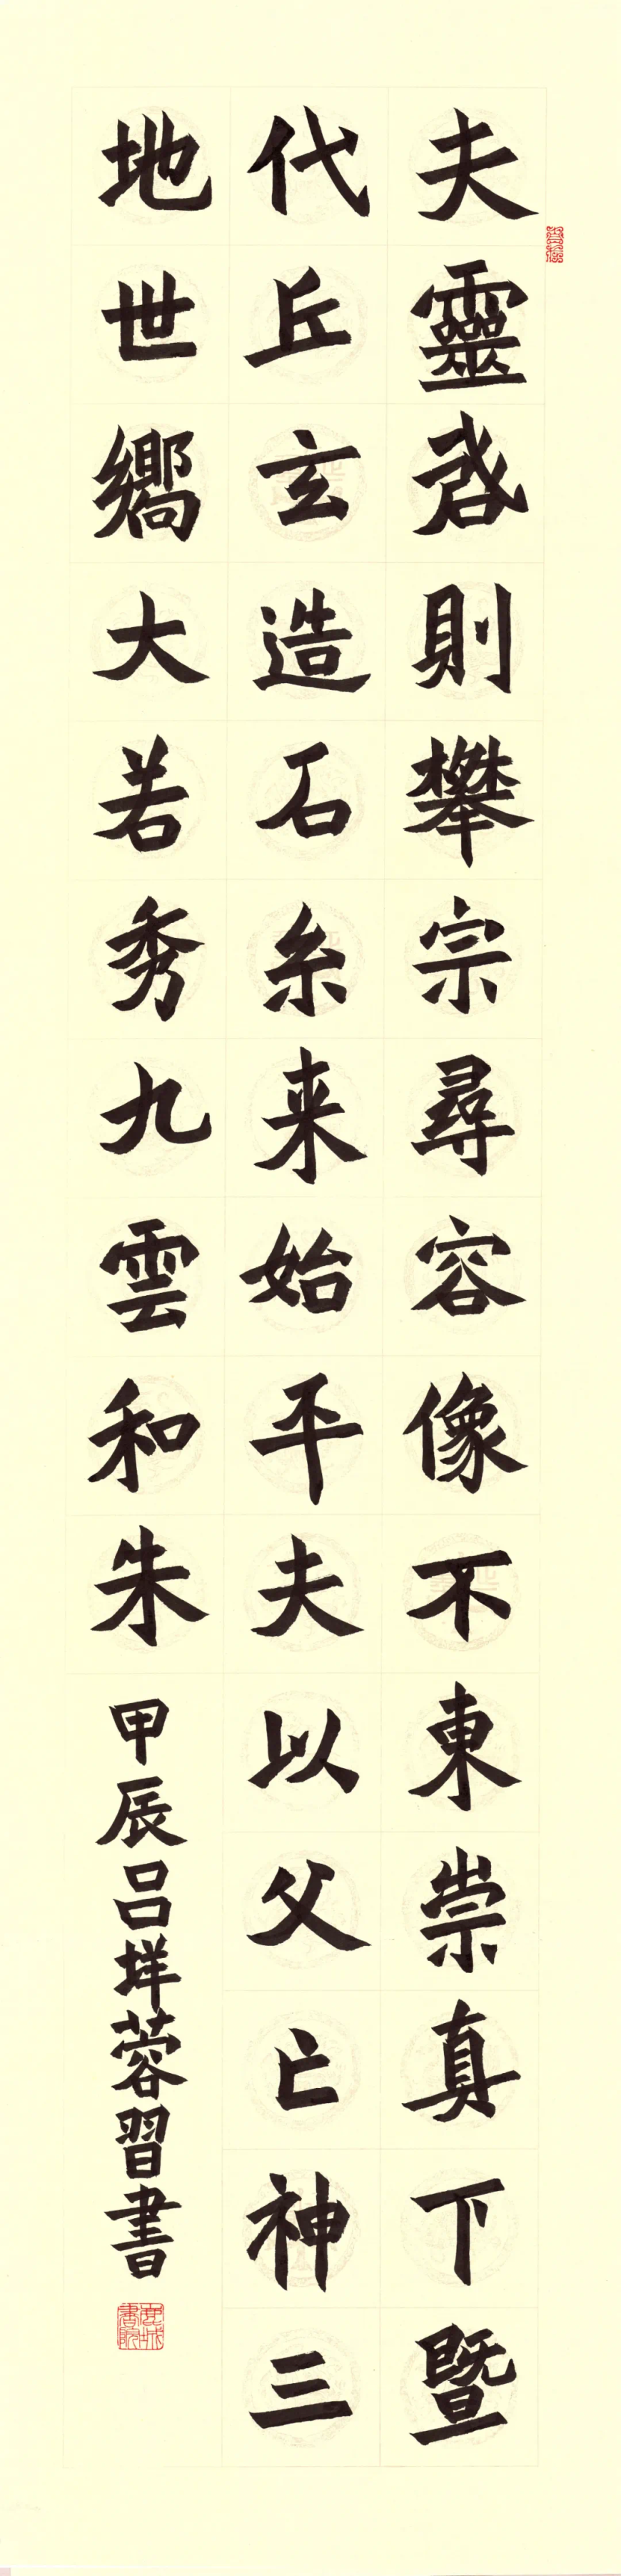 夫靈啓則攀宗尋容像不東崇真下暨
代丘玄造石糸来始平夫以父亡神三
地世嚮大若秀九雲和朱
甲辰吕垟蓉習書
鹿城書院